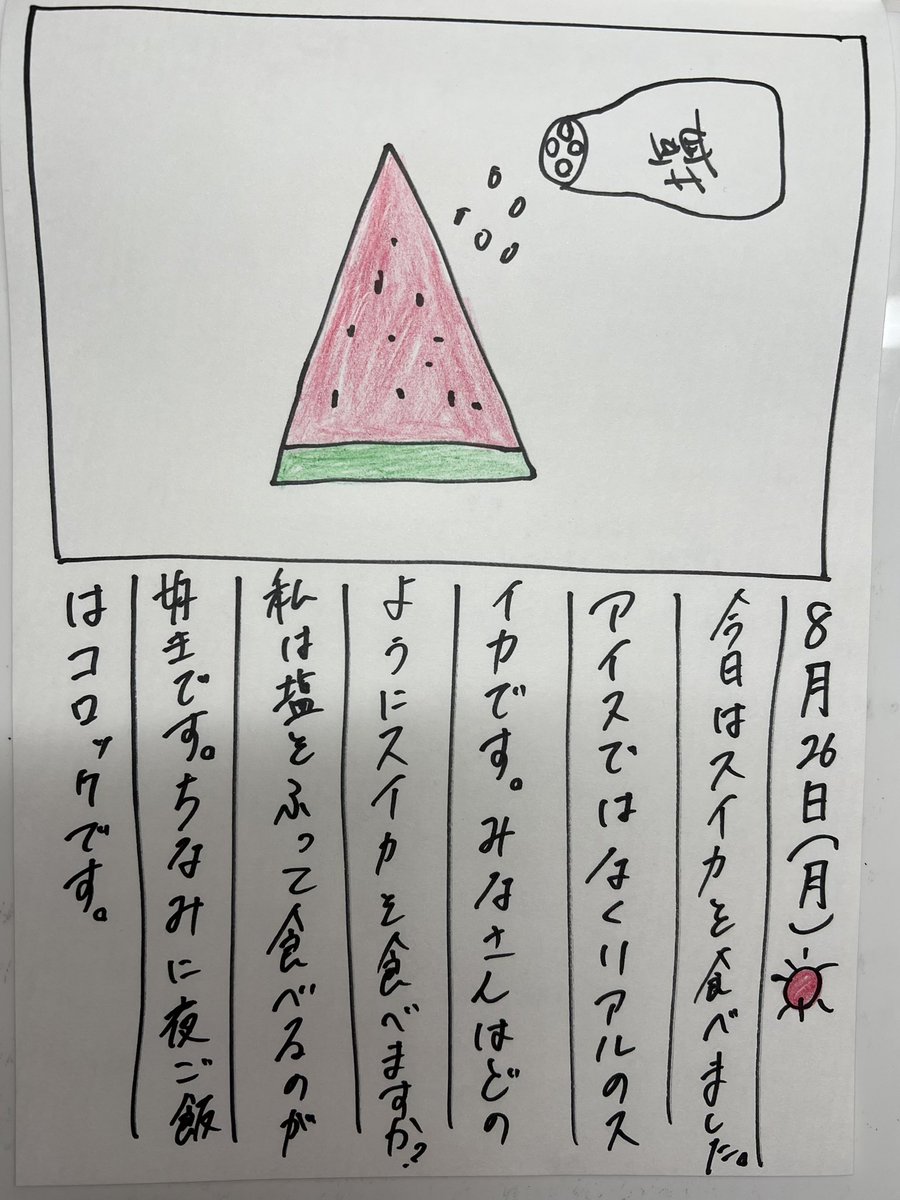 塩
8月26日(月)
今日はスイカを食べました。
アイスではなくリアルのス
イカです。みなさんはどの
ようにスイカを食べますか?
私は塩をふって食べるのが
好きです。ちなみに夜ご飯
はコロッケです。